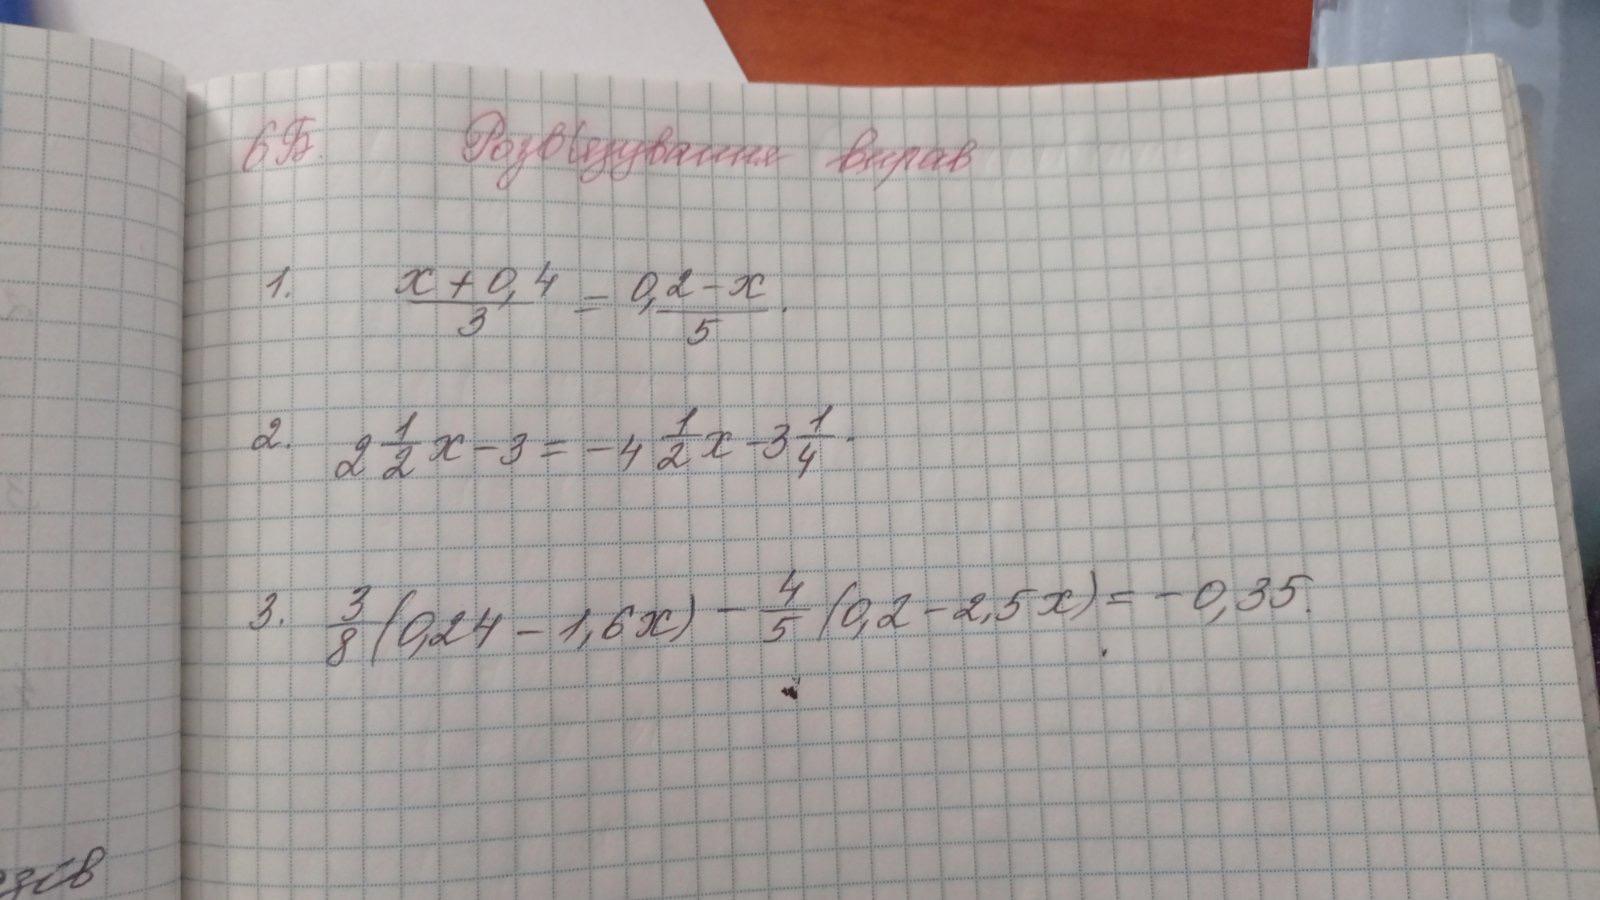 6Б. Розв'язування вправ
1. (x + 0,4)/3 = (0,2 - x)/5.
2. 2 1/2 x - 3 = -4 1/2 x - 3 1/4.
3. 3/8 (0,24 - 1,6x) - 4/5 (0,2 - 2,5x) = -0,35.